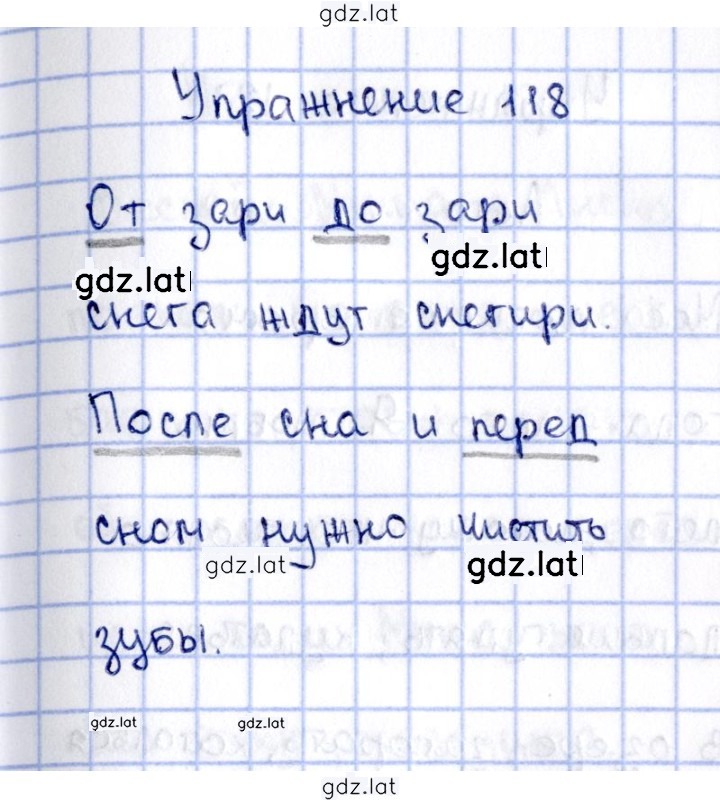 gdz.lat
Упражнение 118
От зари до зари
gdz.lat
gdz.lat
снега ждут снегири.
После сна и перед
сном нужно чистить
gdz.lat
gdz.lat
зубы.
gdz.lat
gdz.lat
gdz.lat